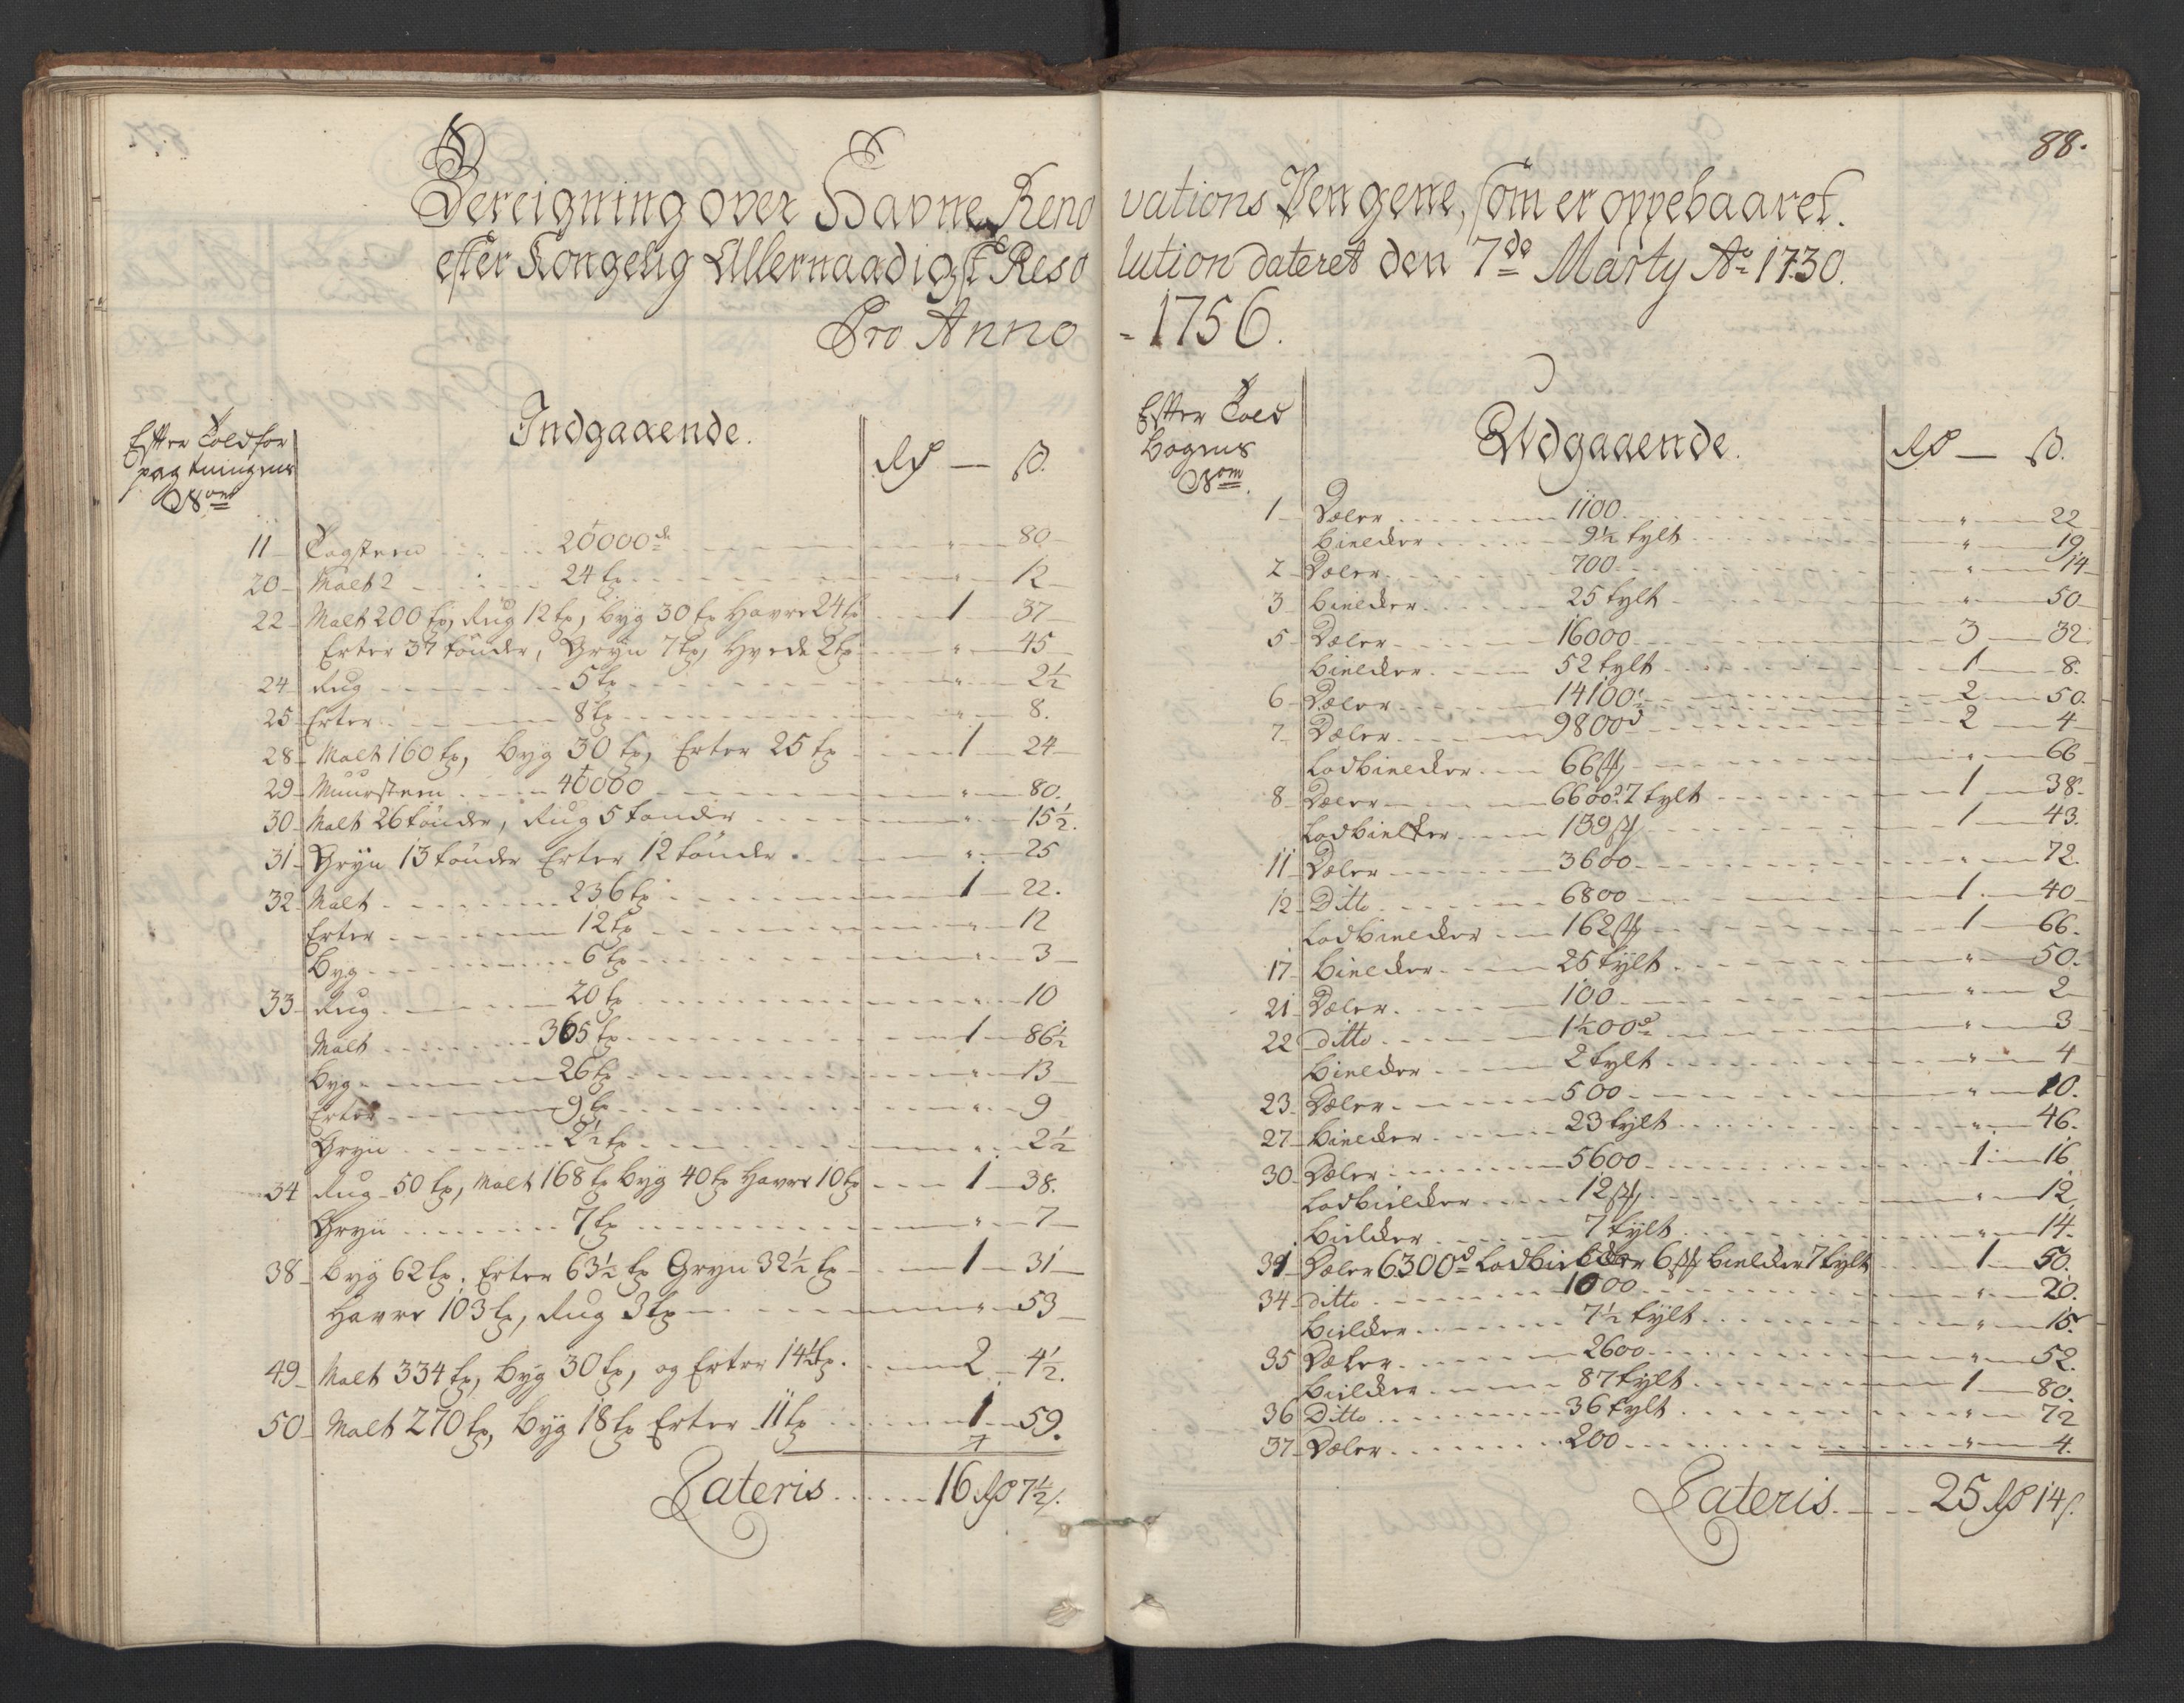 88.
Bereigning over Havne Reno vations Pengene, som er oppebaaret.
efter Kongelig Allernaadigste Reso lution dateret den 7de Marty Ao 1730.
Pro Anno - 1756.
Efter Toldfor
pagtningens
Nom
Indgaaende.
Rd — ß.
11 Tagsteen 20000 " 80
20 Malt 2 24 tr " 12
22 Malt 200 tr, Rug 12 tr, byg 30 tr Havre 24 tr 1 37
Erter 37 tönder, Gryn 7 tr, Hvede 2 tr " 45
24 Rug 5 tr " 2½
25 Erter 8 tr " 8.
28 Malt 160 tr, byg 30 tr, Erter 25 tr 1 24
29 Muursteen 40000 " 80.
30 Malt 26 tönder, Rug 5 tönder " 15½.
31 Gryn 13 tönder Erter 12 tönder " 25
32 Malt 236 tr 1 22.
Erter 12 tr " 12
byg 6 tr " 3
33 Rug 20 tr " 10
Malt 365 tr 1 86½
byg 26 tr " 13
Erter 9 tr " 9
Gryn 2½ tr " 2½
34 Rug 50 tr, Malt 168 tr byg 40 tr Havre 10 tr 1 38.
Gryn 7 tr " 7
38 byg 62 tr. Erter 63½ tr Gryn 32½ tr 1 31
Havre 103 tr, Rug 3 tr " 53
49 Malt 334 tr, byg 30 tr, og Erter 14½ tr. 2 4½.
50 Malt 270 tr, byg 18 tr Erter 11 tr 1 59.
Lateris 16 Rd 7½ ß.
Efter Told
bogens
Nom.
Udgaaende.
Rd — ß.
1 Dæler 1100 " 22
bielcker 9½ tylt " 19
2 Dæler 700 " 14
3 bielcker 25 tylt " 50
5 Dæler 16000 3 32.
bielcker 52 tylt 1 8.
6 Dæler 14100 2 50.
7 Dæler 9800 2 4
Lodbielcker 66 st " 66
8 Dæler 6600 7 tylt 1 38.
Lodbielker 139 st 1 43.
11 Dæler 3600 " 72.
12 Ditto 6800 1 40
Lodbielcker 162 st 1 66.
17 bielcker 25 tylt " 50.
21 Dæler 100 " 2
22 ditto 1½00 " 3
bielcker 2 tylt " 4
23 Dæler 500 " 10.
27 bielcker 23 tylt " 46.
30 Dæler 5600 1 16
Lodbielcker 12 st " 12
bielcker 7 tylt " 14.
31 Dæler 6300 Lodbielcker 6 st bielcker 7 tylt 1 50.
34 ditto 1000 " 20.
bielcker 7½ tylt " 15.
35 Dæler 2600 " 52.
bielcker 87 tylt 1 80.
36 Ditto 36 tylt " 72
37 Dæler 200 " 4.
Lateris 25 Rd 14 ß.